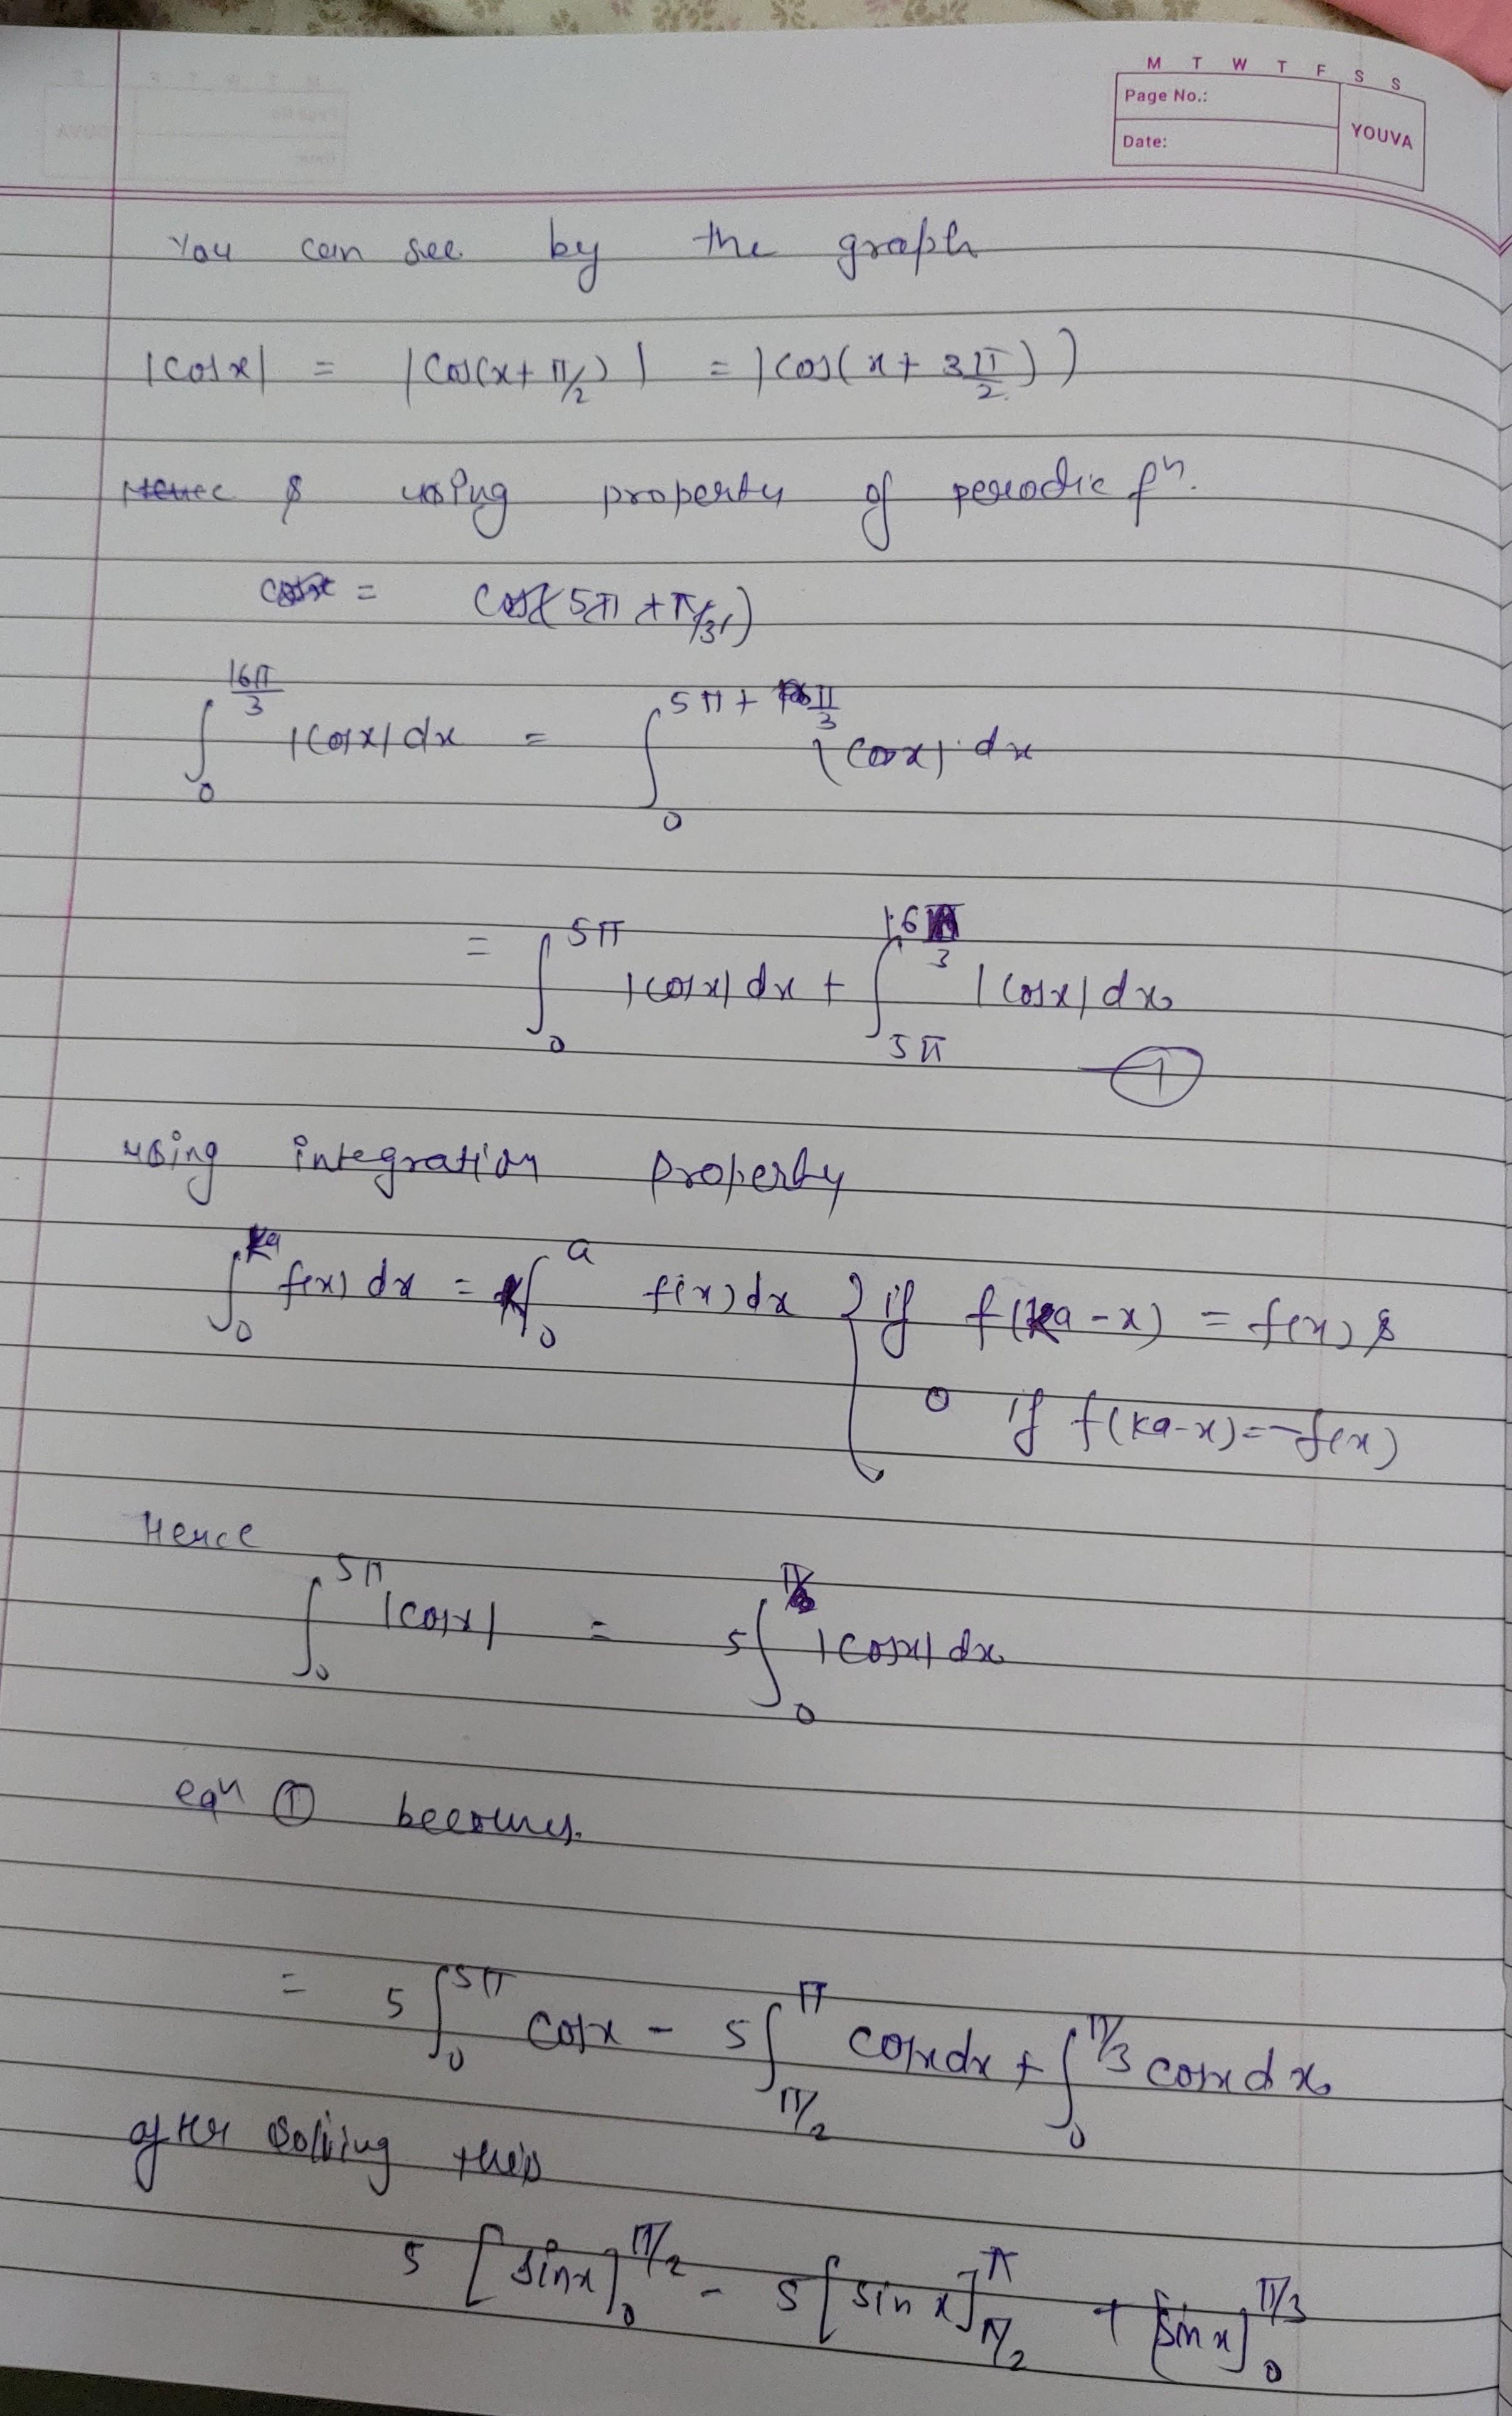 M T W T F S S
Page No.:
Date:
YOUVA
You can see by the graph
|cosx| = |cos(x+π/2)| = |cos(x+3π/2)|
Hence & using property of periodic fn.
cosx = cos(5π+π/3)
∫₀^{16π/3} |cosx| dx = ∫₀^{5π+π/3} |cosx| dx
= ∫₀^{5π} |cosx| dx + ∫_{5π}^{16π/3} |cosx| dx
①
using integration property
∫₀^{ka} f(x) dx = k∫₀^{a} f(x) dx } if f(ka-x) = f(x) &
0 if f(ka-x)=-f(x)
Hence
∫₀^{5π} |cosx| = 5∫₀^{π} |cosx| dx
eqn ① becomes.
= 5∫₀^{5π} cosx - 5∫_{π/2}^{π} cosxdx + ∫₀^{π/3} cosxdx
after solving this
5[sinx]₀^{π/2} - 5[sinx]_{π/2}^{π} + [sinx]₀^{π/3}